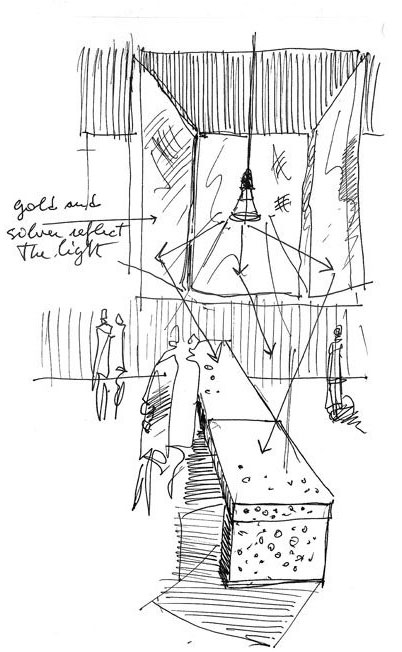 gold and
solver reflect
the light